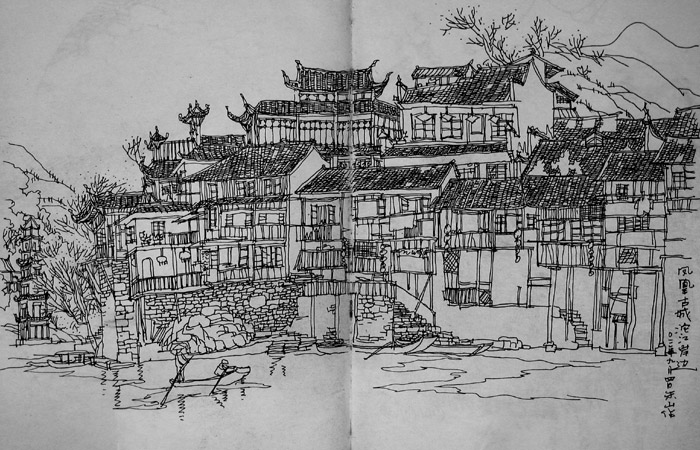 凤凰古城沱江岸边
年九月四日